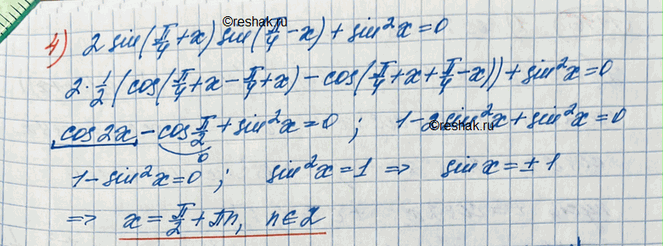 ©reshak.ru
4) 2 sin(π/4+x) sin(π/4-x) + sin²x=0
2·1/2 (cos(π/4+x-π/4+x) - cos(π/4+x+π/4-x)) + sin²x=0
cos2x - cos π/2 + sin²x=0 ; 1-2sin²x+sin²x=0
©reshak.ru
0
1-sin²x=0 ; sin²x=1 => sinx=±1
=> x=π/2+πn, n∈Z